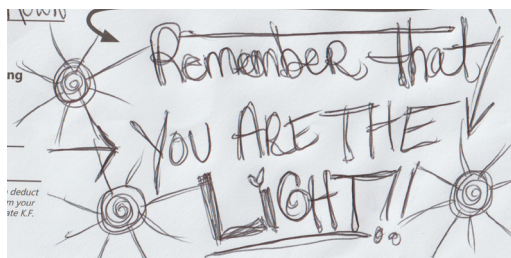 own
ng
Remember that
YOU ARE THE
LiGHT!!
deduct
m your
ate K.F.